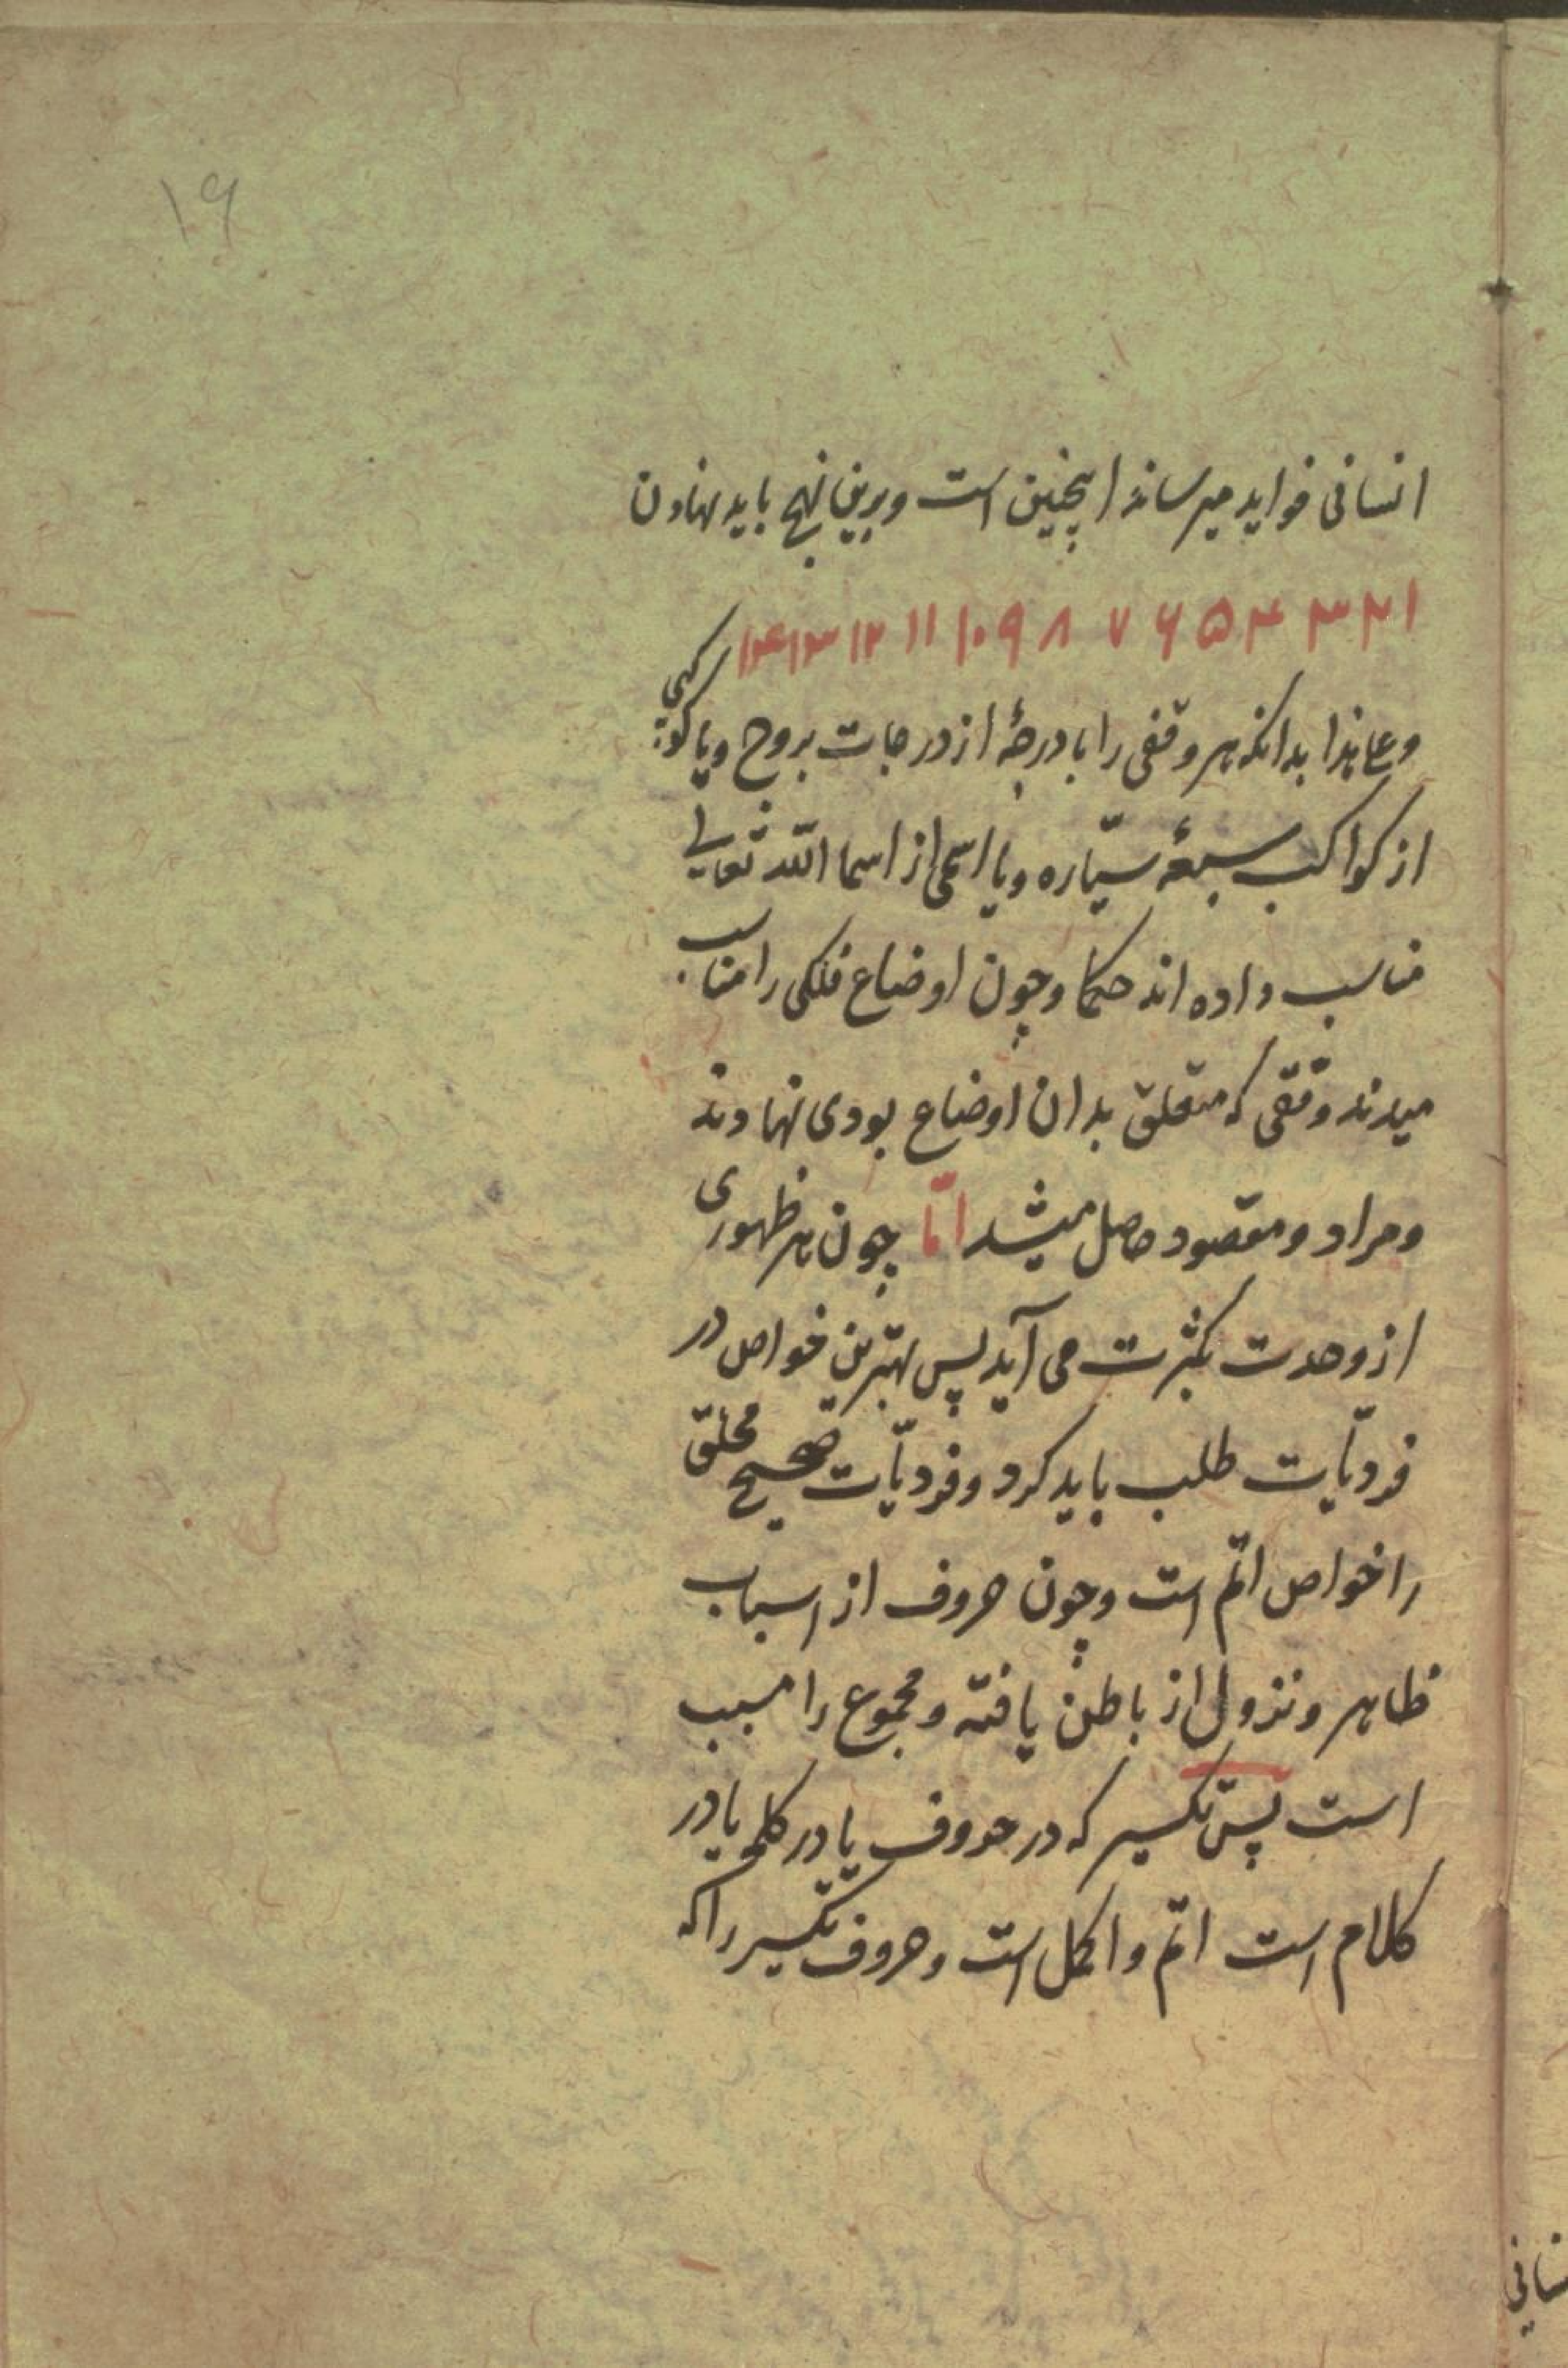 ۱۹
انسانی فواید میرساند اینچنین است و برین نهج باید نهادن
۱ ۲ ۳ ۴ ۵ ۶ ۷ ۸ ۹ ۱۰ ۱۱ ۱۲ ۱۳ ۱۴
و علی هذا بدانکه هر وفقی را با درجهٔ از درجات بروج و یا کوکبی
از کواکب سبعهٔ سیّاره و یا اسمی از اسما الله تعالی
مناسب داده اند حکما و چون اوضاع فلکی را مناسب
میدند وفقی که متعلق بدان اوضاع بودی نهادند
و مراد و مقصود حاصل میشد امّا چون هر ظهوری
از وحدت بکثرت می آید پس بهترین خواص در
فردیّات طلب باید کرد و فردیّات صحیح
را خواص اتمّ است و چون حروف از اسباب
ظاهر و نزول از باطن یافته و مجموع را مسبب
است پس تکسیر که در حروف یا در کلمه یا در
کلام است اتمّ و اکمل است و حروف تکسیر را که
سانی